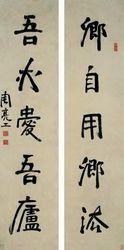 卿自用卿法
吾亦愛吾廬
周亮工